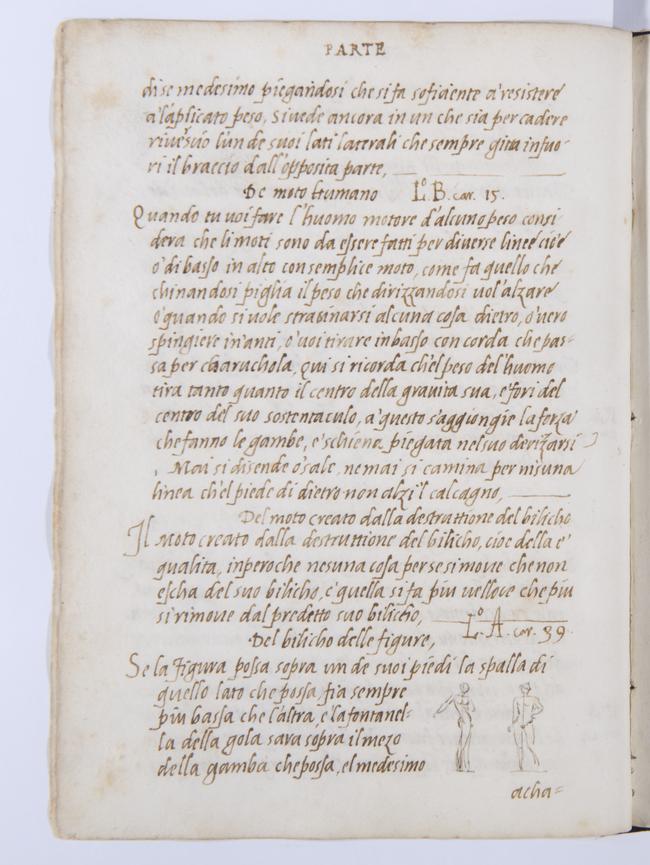 PARTE
di se medesimo piegandosi che si fa soficiente a' resistere
a' l'aplicato peso, Si vede ancora in un che sia per cadere
l'un de suoi lati laterali che sempre gitta infuo-
ri il braccio dall'opposita parte,
De moto humano Lº. B. car. 15.
Quando tu voi fare l'huomo motore d'alcuno peso consi
dera che li moti sono da essere fatti per diverse linee cioè
o' di basso in alto con semplice moto, come fa quello che
chinandosi piglia il peso che dirizzandosi vol'alzare
o' quando si vole strassinarsi alcuna cosa dietro, o' vero
spingiere in'anti, o' voi tirare in basso con corda che pas-
sa per charuchola, qui si ricorda ch'el peso del'huomo
tira tanto quanto il centro della gravita sua, e' fori del
centro del suo sostentaculo, a' questo s'aggiongie la forza
che fanno le gambe, e' schiena piegata nel suo derizzarsi
, Mai si disende o' sale, ne mai si camina per nisuna
linea ch'el piede di dietro non alzi'l calcagno,
Del moto creato dalla destruttione del bilicho
Il Moto creato dalla destruttione del bilicho, cioe della e'
qualita, inperoche nesuna cosa per se si move che non
escha del suo bilicho, e' quella si fa piu velloce che piu
si rimove dal predetto suo bilicho,
Lº. A. car. 39
Del bilicho delle figure,
Se la figura possa sopra un de suoi piedi la spalla di
quello lato che possa, fia sempre
piu bassa che l'altra, e' la fontanel-
la della gola sara sopra il mezo
della gamba che possa, el medesimo
acha=